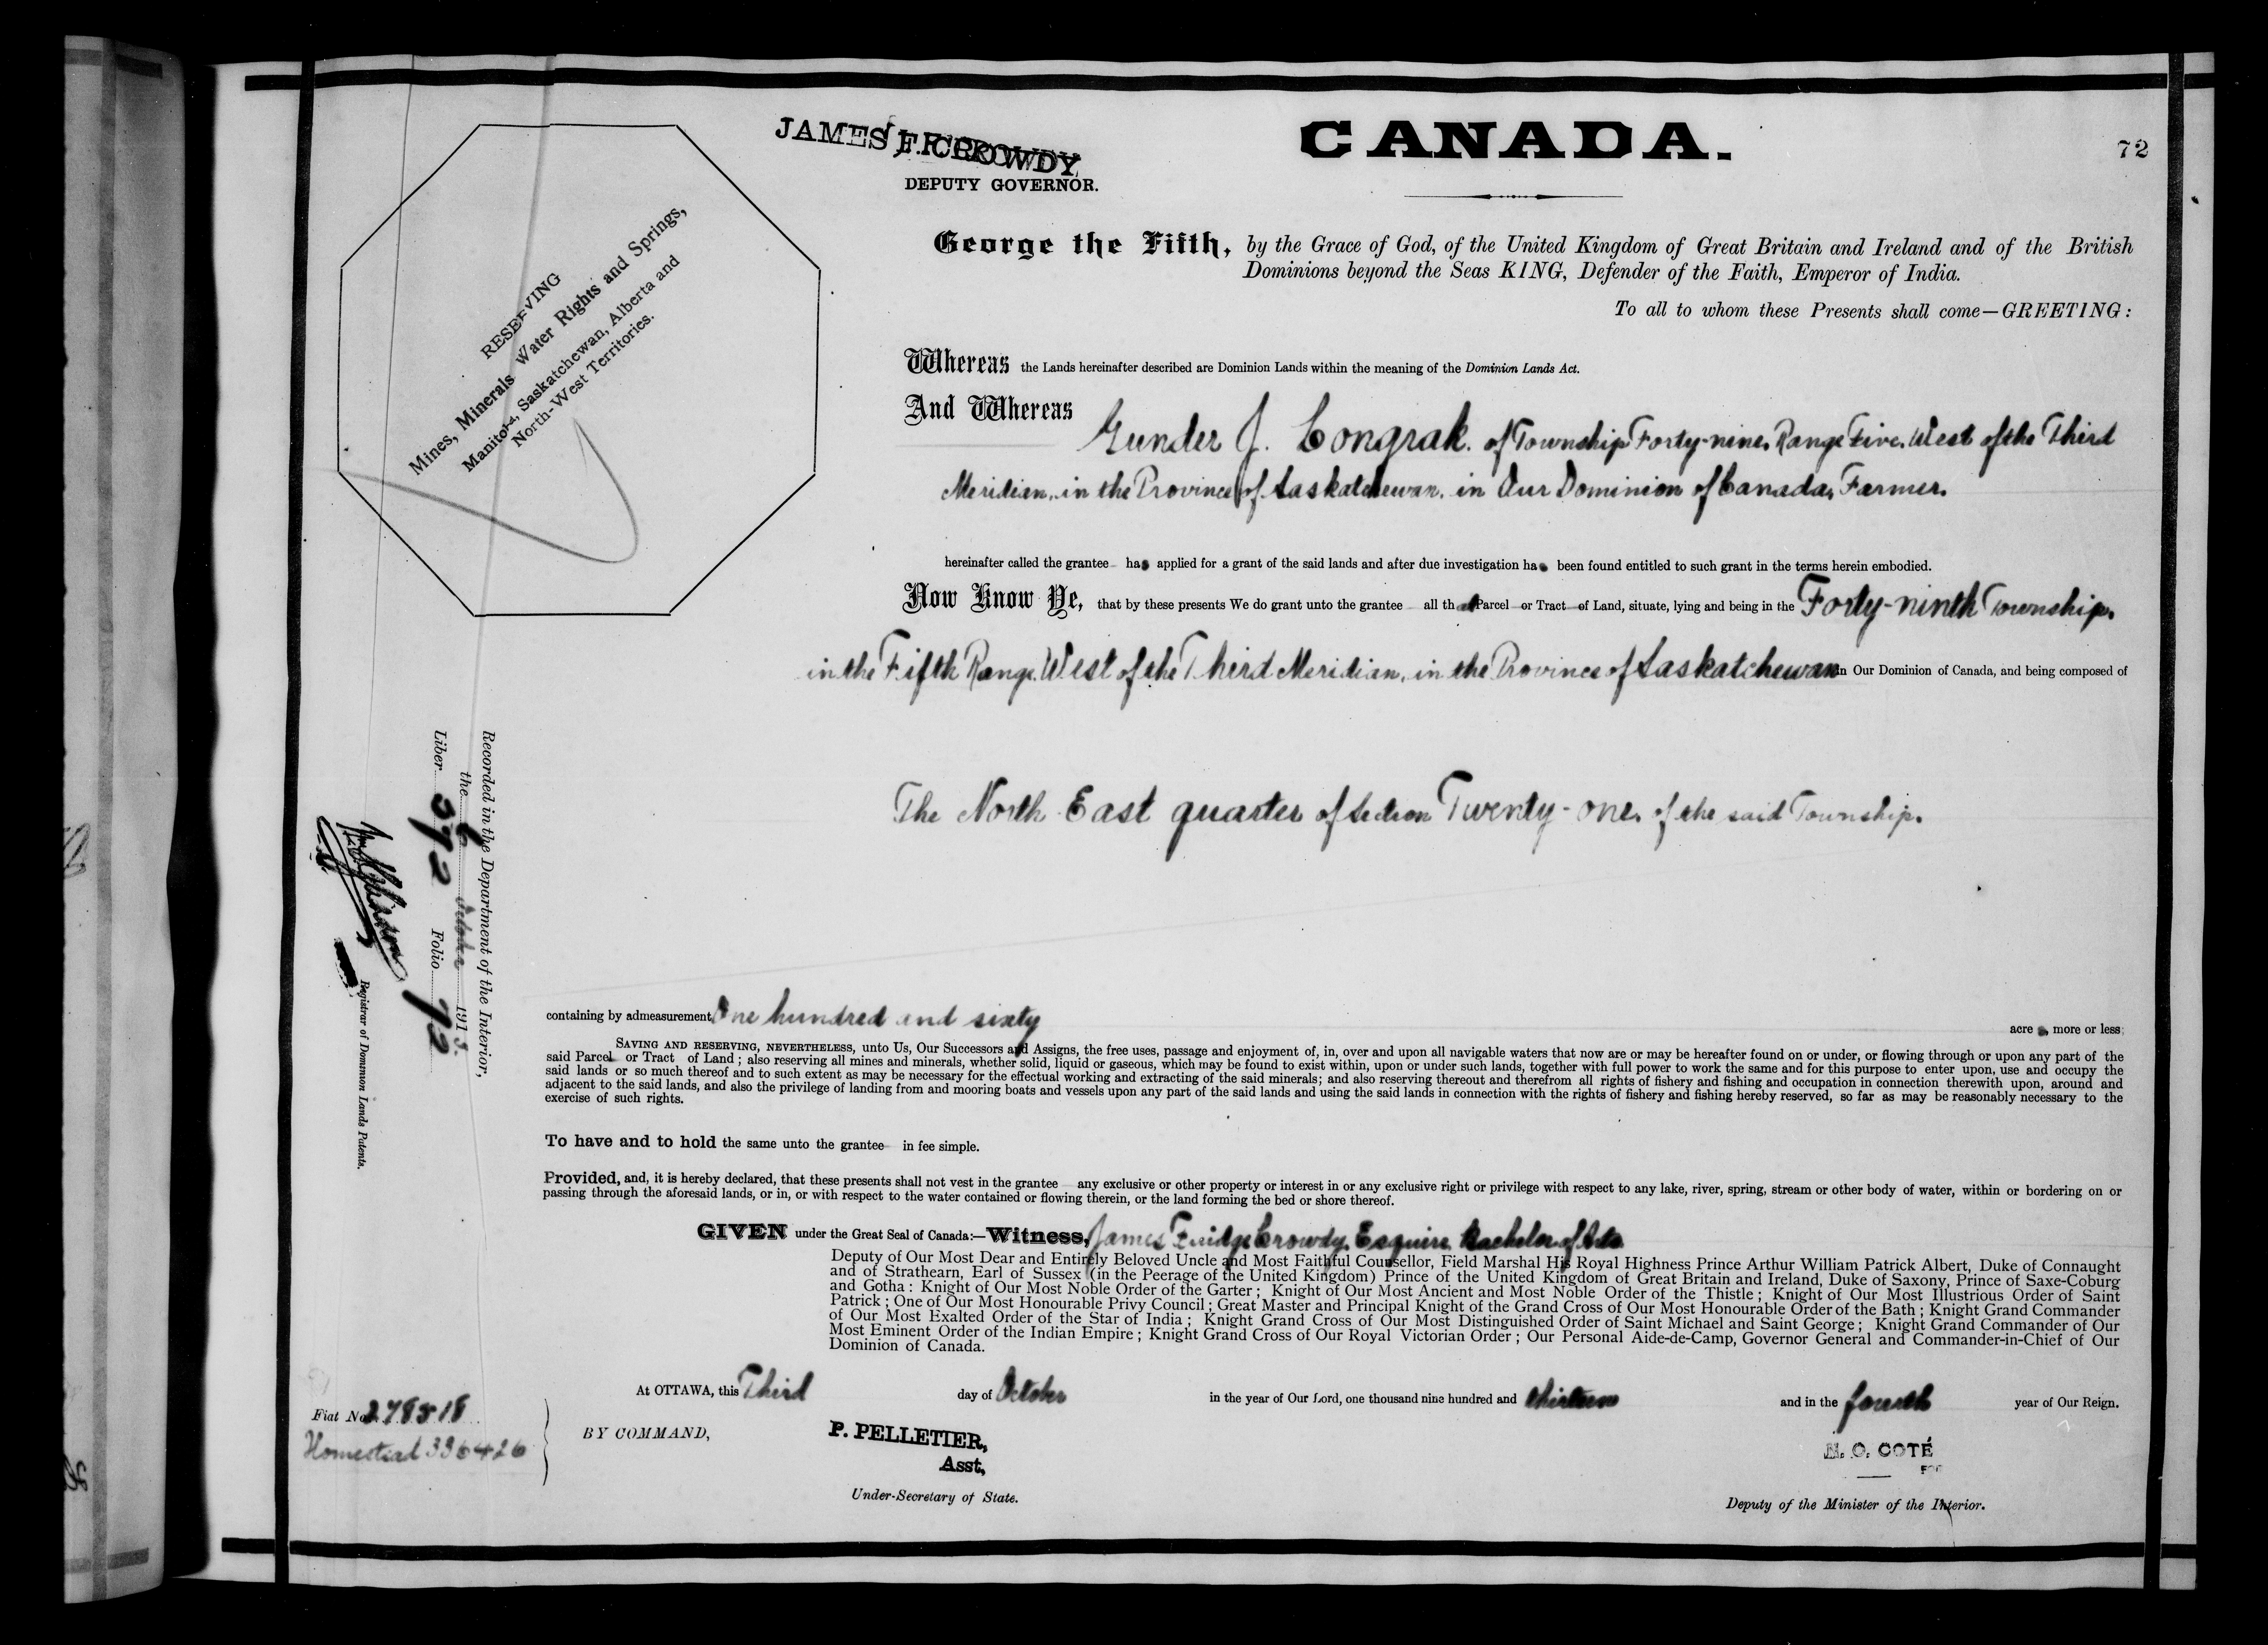 CANADA.
72
JAMES F. CROWDY,
DEPUTY GOVERNOR.
RESERVING
Mines, Minerals Water Rights and Springs,
Manitoba, Saskatchewan, Alberta and
North-West Territories.
George the Fifth, by the Grace of God, of the United Kingdom of Great Britain and Ireland and of the British
Dominions beyond the Seas KING, Defender of the Faith, Emperor of India.
To all to whom these Presents shall come—GREETING:
Whereas the Lands hereinafter described are Dominion Lands within the meaning of the Dominion Lands Act.
And Whereas Gunder J. Congrak. of Township Forty-nine, Range Five, West of the Third
Meridian, in the Province of Saskatchewan, in Our Dominion of Canada, Farmer.
hereinafter called the grantee has applied for a grant of the said lands and after due investigation has been found entitled to such grant in the terms herein embodied.
Now Know Ye, that by these presents We do grant unto the grantee all that Parcel or Tract of Land, situate, lying and being in the Forty-ninth Township,
in the Fifth Range, West of the Third Meridian, in the Province of Saskatchewan in Our Dominion of Canada, and being composed of
The North East quarter of Section Twenty-one, of the said Township.
containing by admeasurement One hundred and sixty acres, more or less;
SAVING AND RESERVING, NEVERTHELESS, unto Us, Our Successors and Assigns, the free uses, passage and enjoyment of, in, over and upon all navigable waters that now are or may be hereafter found on or under, or flowing through or upon any part of the
said Parcel or Tract of Land; also reserving all mines and minerals, whether solid, liquid or gaseous, which may be found to exist within, upon or under such lands, together with full power to work the same and for this purpose to enter upon, use and occupy the
said lands or so much thereof and to such extent as may be necessary for the effectual working and extracting of the said minerals; and also reserving thereout and therefrom all rights of fishery and fishing and occupation in connection therewith upon, around and
adjacent to the said lands, and also the privilege of landing from and mooring boats and vessels upon any part of the said lands and using the said lands in connection with the rights of fishery and fishing hereby reserved, so far as may be reasonably necessary to the
exercise of such rights.
To have and to hold the same unto the grantee in fee simple.
Provided, and, it is hereby declared, that these presents shall not vest in the grantee any exclusive or other property or interest in or any exclusive right or privilege with respect to any lake, river, spring, stream or other body of water, within or bordering on or
passing through the aforesaid lands, or in, or with respect to the water contained or flowing therein, or the land forming the bed or shore thereof.
GIVEN under the Great Seal of Canada:—Witness, James Fuidge Crowdy, Esquire, Bachelor of Arts
Deputy of Our Most Dear and Entirely Beloved Uncle and Most Faithful Counsellor, Field Marshal His Royal Highness Prince Arthur William Patrick Albert, Duke of Connaught
and of Strathearn, Earl of Sussex (in the Peerage of the United Kingdom) Prince of the United Kingdom of Great Britain and Ireland, Duke of Saxony, Prince of Saxe-Coburg
and Gotha: Knight of Our Most Noble Order of the Garter; Knight of Our Most Ancient and Most Noble Order of the Thistle; Knight of Our Most Illustrious Order of Saint
Patrick; One of Our Most Honourable Privy Council; Great Master and Principal Knight of the Grand Cross of Our Most Honourable Order of the Bath; Knight Grand Commander
of Our Most Exalted Order of the Star of India; Knight Grand Cross of Our Most Distinguished Order of Saint Michael and Saint George; Knight Grand Commander of Our
Most Eminent Order of the Indian Empire; Knight Grand Cross of Our Royal Victorian Order; Our Personal Aide-de-Camp, Governor General and Commander-in-Chief of Our
Dominion of Canada.
At OTTAWA, this Third day of October in the year of Our Lord, one thousand nine hundred and thirteen and in the fourth year of Our Reign.
BY COMMAND,
P. PELLETIER,
Asst,
Under-Secretary of State.
N. O. COTÉ
FOR
Deputy of the Minister of the Interior.
Recorded in the Department of the Interior,
the 6 October 1913.
Liber 392 Folio 72
Registrar of Dominion Lands Patents.
Fiat No. 278518
Homestead 336426